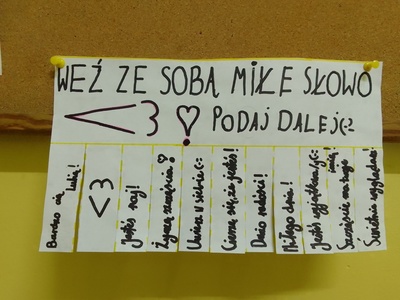 WEŹ ZE SOBĄ MIŁE SŁOWO
<3 ♡ PODAJ DALEJ (:
Bardzo cię lubię!
<3
Jesteś naj!
Życzę szczęścia!
Uwierz w siebie (:
Cieszę się, że jesteś!
Dużo radości!
Miłego dnia!
Jesteś wyjątkowy/ą (:
Ślicznie wyglądasz!